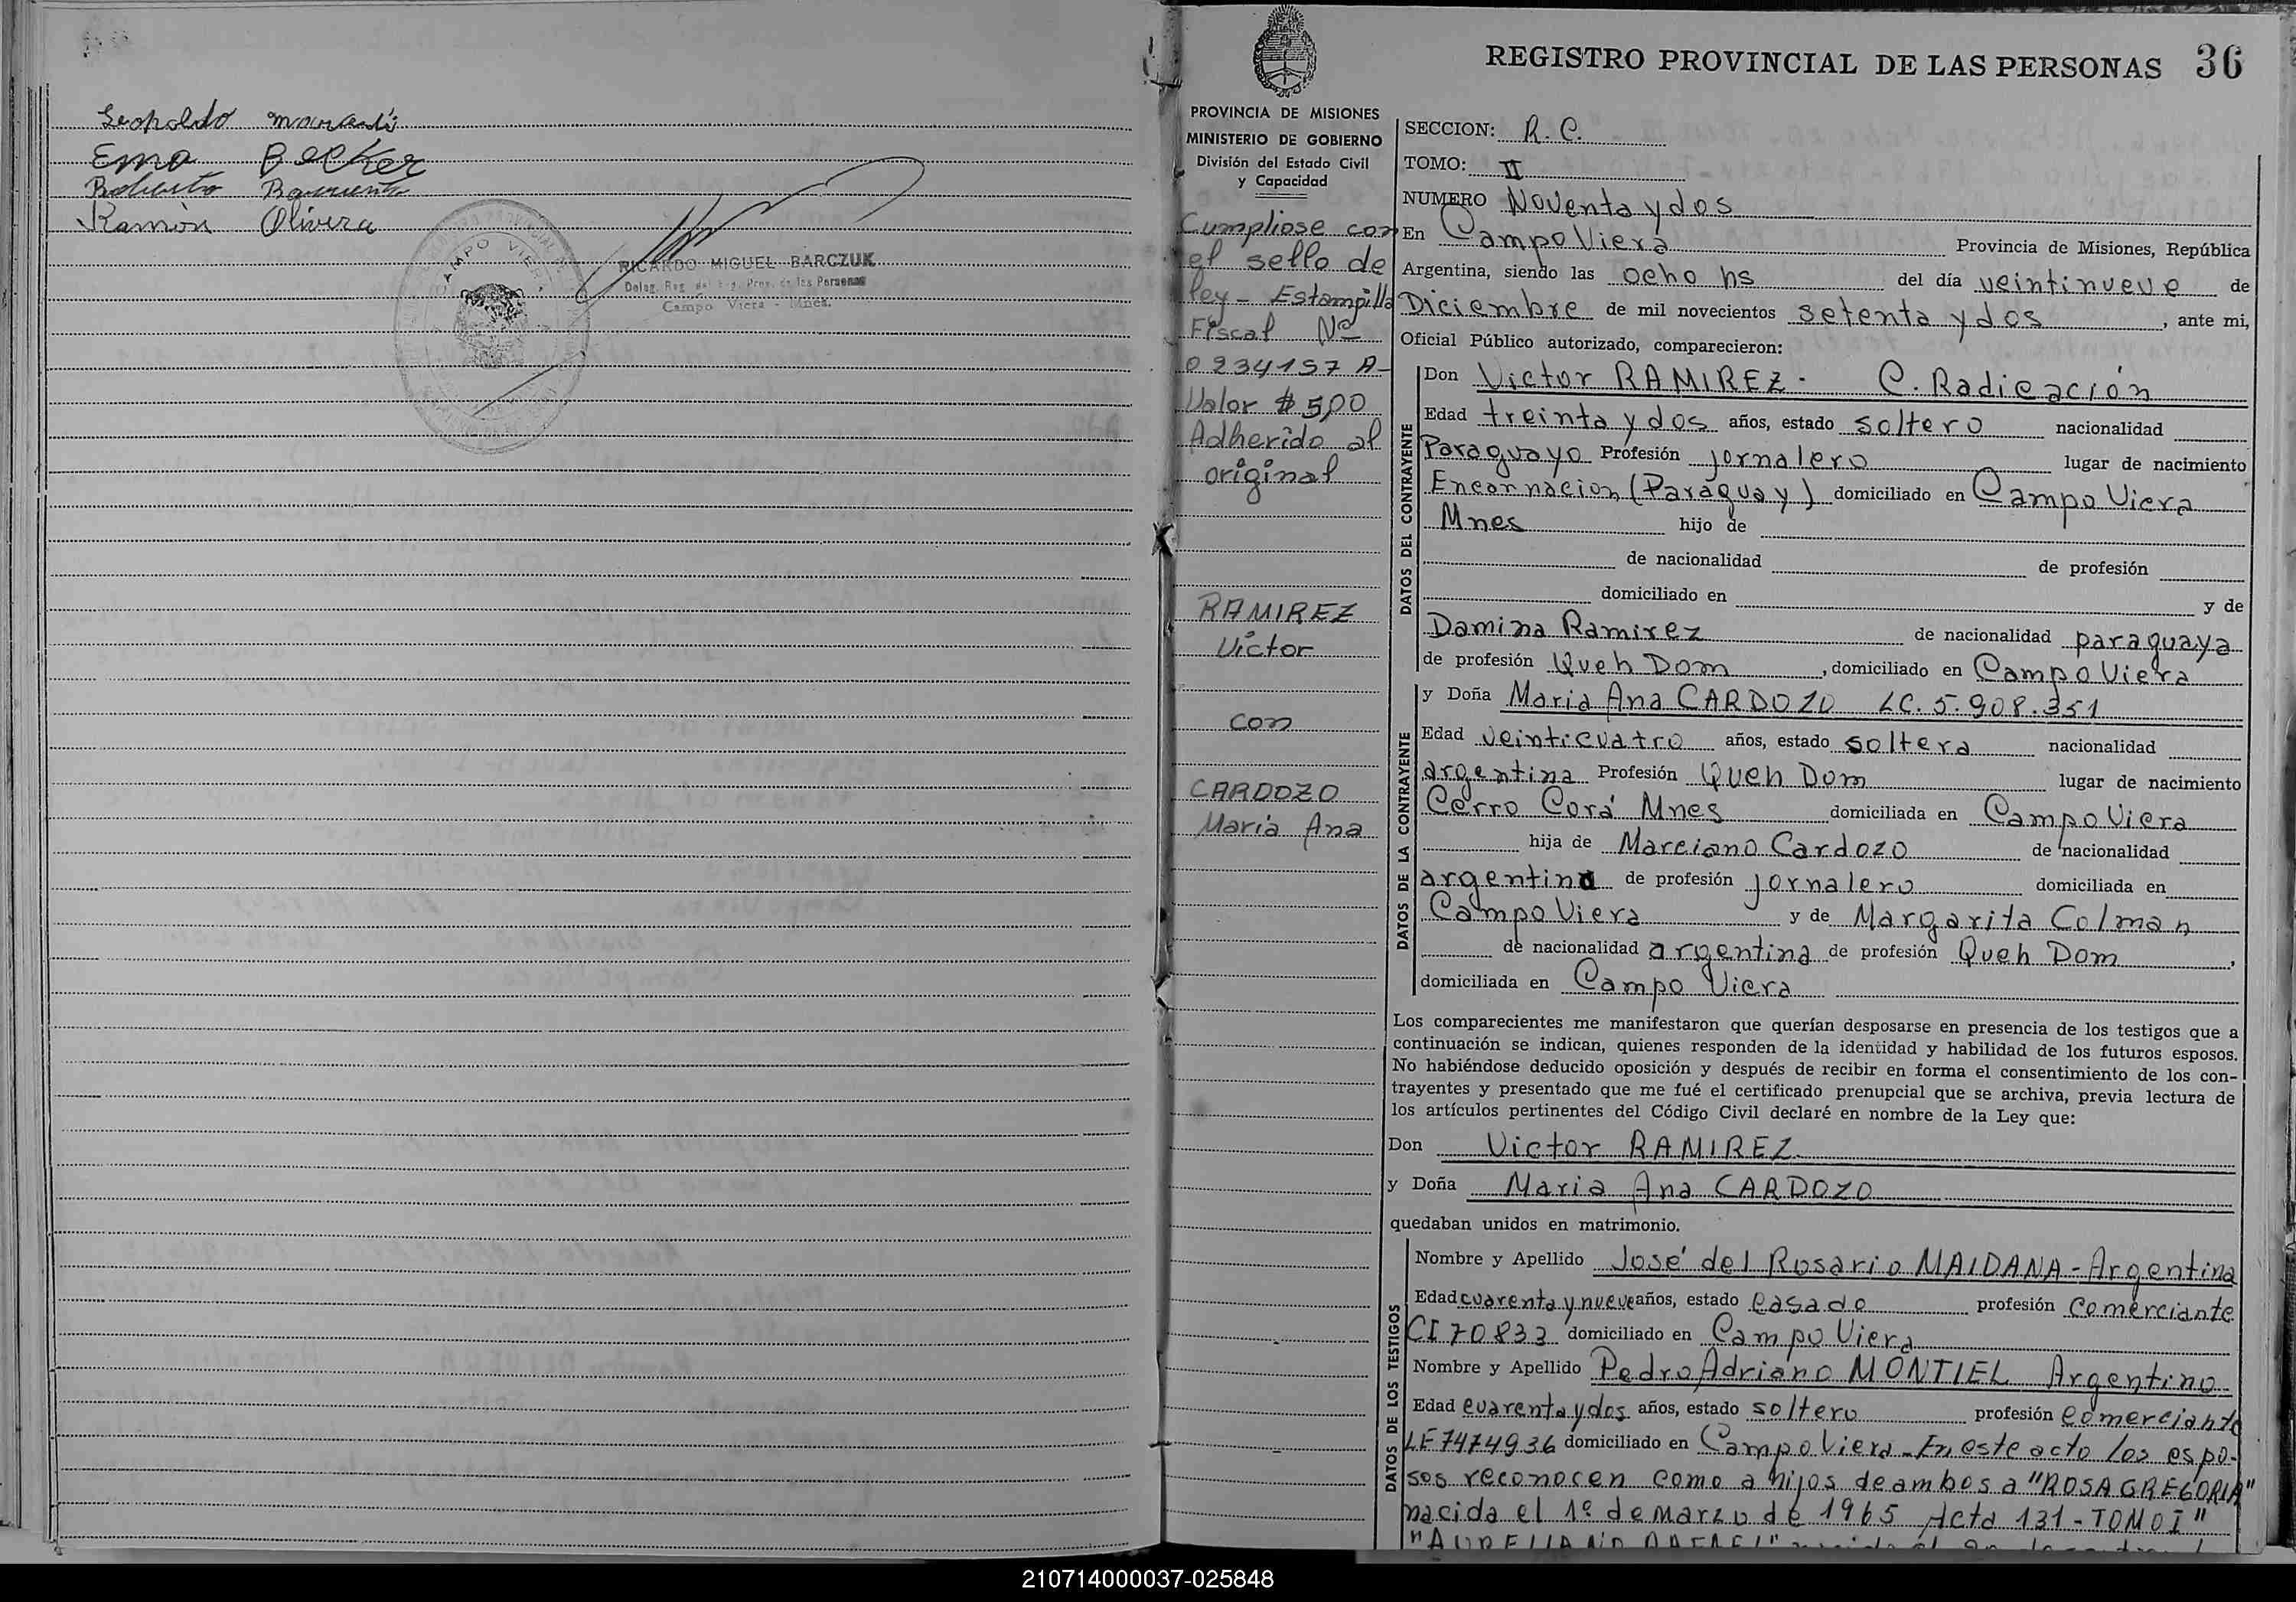 Leopoldo
Ema Becker
Roberto
Ramón Olivera
CAMPO VIERA
RICARDO MIGUEL BARCZUK
Deleg. Reg. del Reg. Prov. de las Personas
Campo Viera - Mnes.
REGISTRO PROVINCIAL DE LAS PERSONAS 36
PROVINCIA DE MISIONES
MINISTERIO DE GOBIERNO
División del Estado Civil
y Capacidad
Cumpliose con
el sello de
ley - Estampilla
Fiscal Nº
0234157 A-
Valor $ 5,00
Adherido al
original
RAMIREZ
Victor
con
CARDOZO
Maria Ana
SECCION: R. C.
TOMO: II
NUMERO Noventa y dos
En Campo Viera Provincia de Misiones, República
Argentina, siendo las ocho hs del día veintinueve de
Diciembre de mil novecientos setenta y dos, ante mi,
Oficial Público autorizado, comparecieron:
DATOS DEL CONTRAYENTE
Don Victor RAMIREZ - C. Radicación
Edad treinta y dos años, estado soltero nacionalidad
Paraguayo Profesión jornalero lugar de nacimiento
Encarnacion (Paraguay) domiciliado en Campo Viera
Mnes hijo de
de nacionalidad de profesión
domiciliado en y de
Damina Ramirez de nacionalidad paraguaya
de profesión Queh Dom, domiciliado en Campo Viera
DATOS DE LA CONTRAYENTE
y Doña Maria Ana CARDOZO LC. 5.908.351
Edad veinticuatro años, estado soltera nacionalidad
argentina Profesión Queh Dom lugar de nacimiento
Cerro Corá Mnes domiciliada en Campo Viera
hija de Marciano Cardozo de nacionalidad
argentina de profesión jornalero domiciliada en
Campo Viera y de Margarita Colman
de nacionalidad argentina de profesión Queh Dom,
domiciliada en Campo Viera
Los comparecientes me manifestaron que querían desposarse en presencia de los testigos que a
continuación se indican, quienes responden de la identidad y habilidad de los futuros esposos.
No habiéndose deducido oposición y después de recibir en forma el consentimiento de los con-
trayentes y presentado que me fué el certificado prenupcial que se archiva, previa lectura de
los artículos pertinentes del Código Civil declaré en nombre de la Ley que:
Don Victor RAMIREZ
y Doña Maria Ana CARDOZO
quedaban unidos en matrimonio.
DATOS DE LOS TESTIGOS
Nombre y Apellido José del Rosario MAIDANA - Argentina
Edad cuarenta y nueve años, estado casado profesión comerciante
CI 70833 domiciliado en Campo Viera
Nombre y Apellido Pedro Adriano MONTIEL Argentino
Edad cuarenta y dos años, estado soltero profesión comerciante
LE 7474936 domiciliado en Campo Viera - En este acto los espo-
sos reconocen como a hijos de ambos a "ROSA GREGORIA"
nacida el 1º de Marzo de 1965 Acta 131 - TOMO I"
210714000037-025848